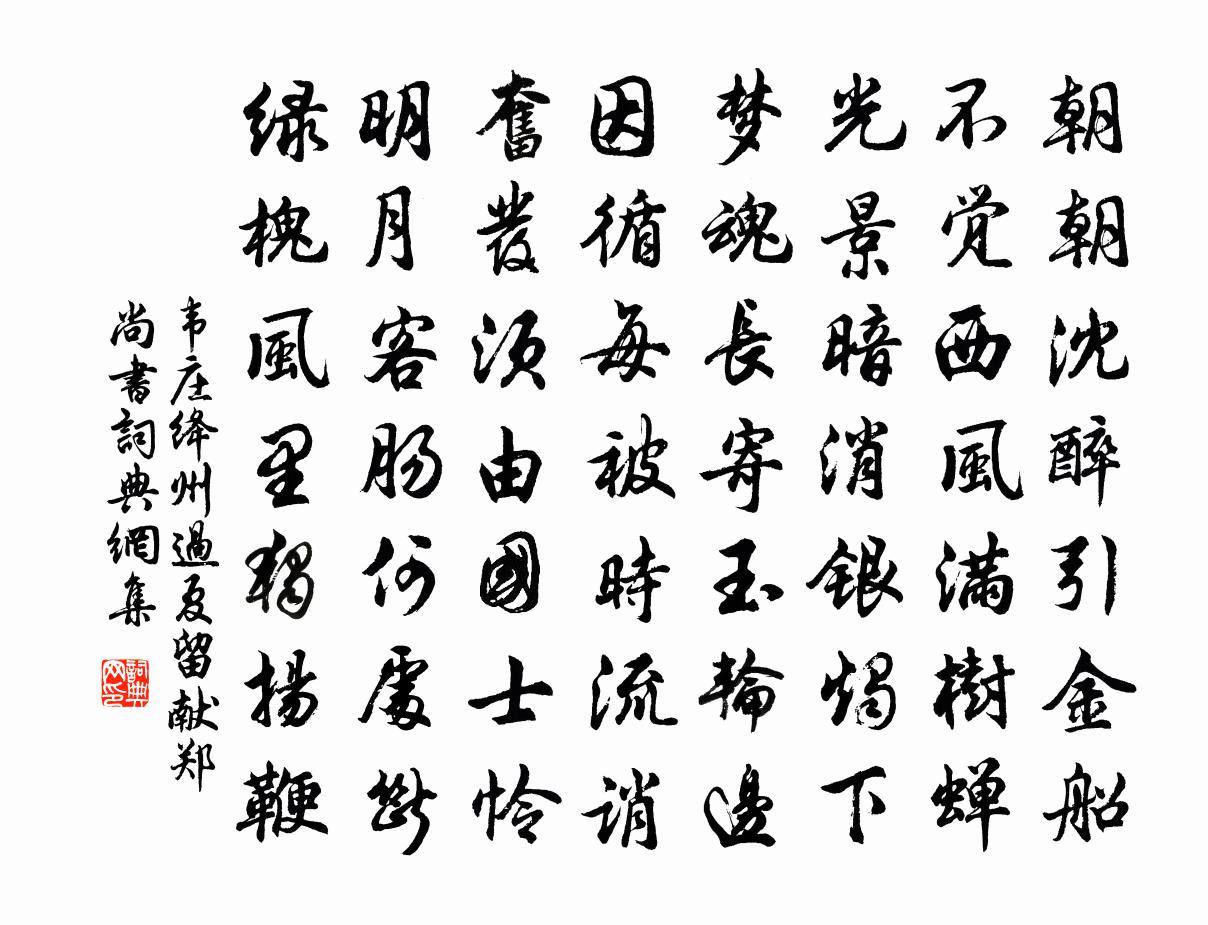 朝朝沈醉引金船
不觉西風满樹蝉
光景暗消銀燭下
梦魂長寄玉輪邊
因循每被時流誚
奮發须由國士怜
明月客肠何處斷
绿槐風里獨揚鞭
韦庄绛州過夏留献郑
尚書詞典網集
詞典网印